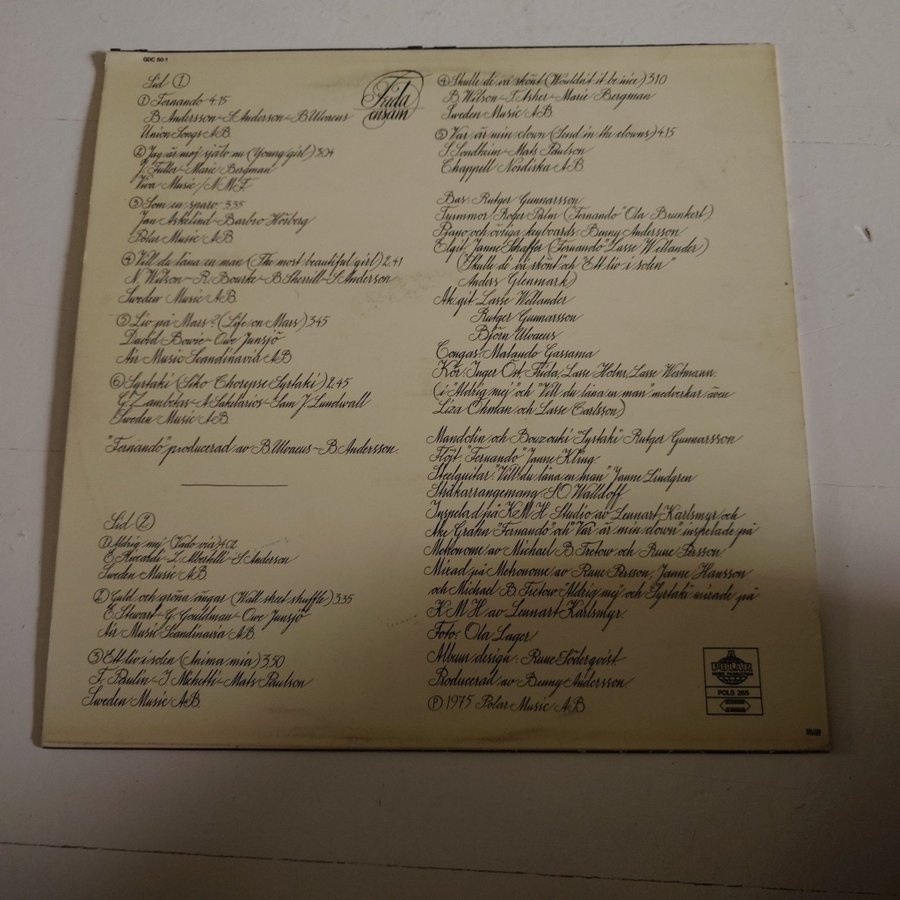 GDC 50-1
Frida
ensam
Sid 1
1 Fernando 4.15
B. Andersson-S. Anderson-B. Ulvaeus
Union Songs AB
2 Jag är mej själv nu (Young girl) 3.04
J. Fuller-Marie Bergman
Viva Music/N.M.F.
3 Som en sparv 3.35
Jan Askelind-Barbro Hörberg
Polar Music AB
4 Vill du låna en man (The most beautiful girl) 2.41
N. Wilson-R. Bourke-B. Sherrill-S. Anderson
Sweden Music AB.
5 Liv på Mars? (Life on Mars) 3.45
David Bowie-Owe Junsjö
Air Music Scandinavia AB
6 Syrtaki (Siko Chorepse Syrtaki) 2.45
G. Zambetas-A. Sakelarios-Sam J. Lundwall
Sweden Music AB.
"Fernando" producerad av B. Ulvaeus-B. Andersson.
Sid 2
1 Aldrig mej (Vado via) 4.02
E. Riccardi-L. Albertelli-S. Anderson
Sweden Music AB
2 Guld och gröna ängar (Wall street shuffle) 3.35
E. Stewart-G. Gouldman-Owe Junsjö
Air Music Scandinavia AB.
3 Ett liv i solen (Anima mia) 3.50
F. Paulin-I. Michetti-Mats Paulson
Sweden Music AB.
4 Skulle de va skönt (Wouldn't it be nice) 3.10
B. Wilson-T. Asher-Marie Bergman
Sweden Music AB.
5 Var är min clown (Send in the clowns) 4.15
S. Sondheim-Mats Paulson
Chappell Nordiska AB.
Bas: Rutger Gunnarsson
Trummor: Roger Palm ("Fernando" Ola Brunkert)
Piano och övriga keyboards: Benny Andersson
Elgit: Janne Schaffer ("Fernando" Lasse Wellander)
("Skulle de va skönt" och "Ett liv i solen"
Anders Glenmark)
Ak. git: Lasse Wellander
Rutger Gunnarsson
Björn Ulvaeus
Congas: Malando Gassama
Kör: Inger Öst, Frida, Lasse Holm, Lasse Westmann.
(i "Aldrig mej" och "Vill du låna en man" medverkar även
Liza Öhman och Lasse Carlsson)
Mandolin och Bouzouki "Syrtaki" Rutger Gunnarsson
Flöjt "Fernando" Janne Kling.
Steelguitar: "Vill du låna en man" Janne Lindgren
Stråkarrangemang: S.O. Walldoff
Inspelad på K.M.H. Studio av Lennart Karlsmyr och
Åke Grahn "Fernando" och "Var är min clown" inspelade på
Metronome av Michael B. Tretow och Rune Persson
Mixad på Metronome av Rune Persson, Janne Hansson
och Michael B. Tretow "Aldrig mej" och Syrtaki mixade på
K.M.H. av Lennart Karlsmyr.
Foto: Ola Lager
Album design: Rune Söderqvist
Producerad av Benny Andersson.
Ⓟ 1975 Polar Music AB
POLAR
POLS 265